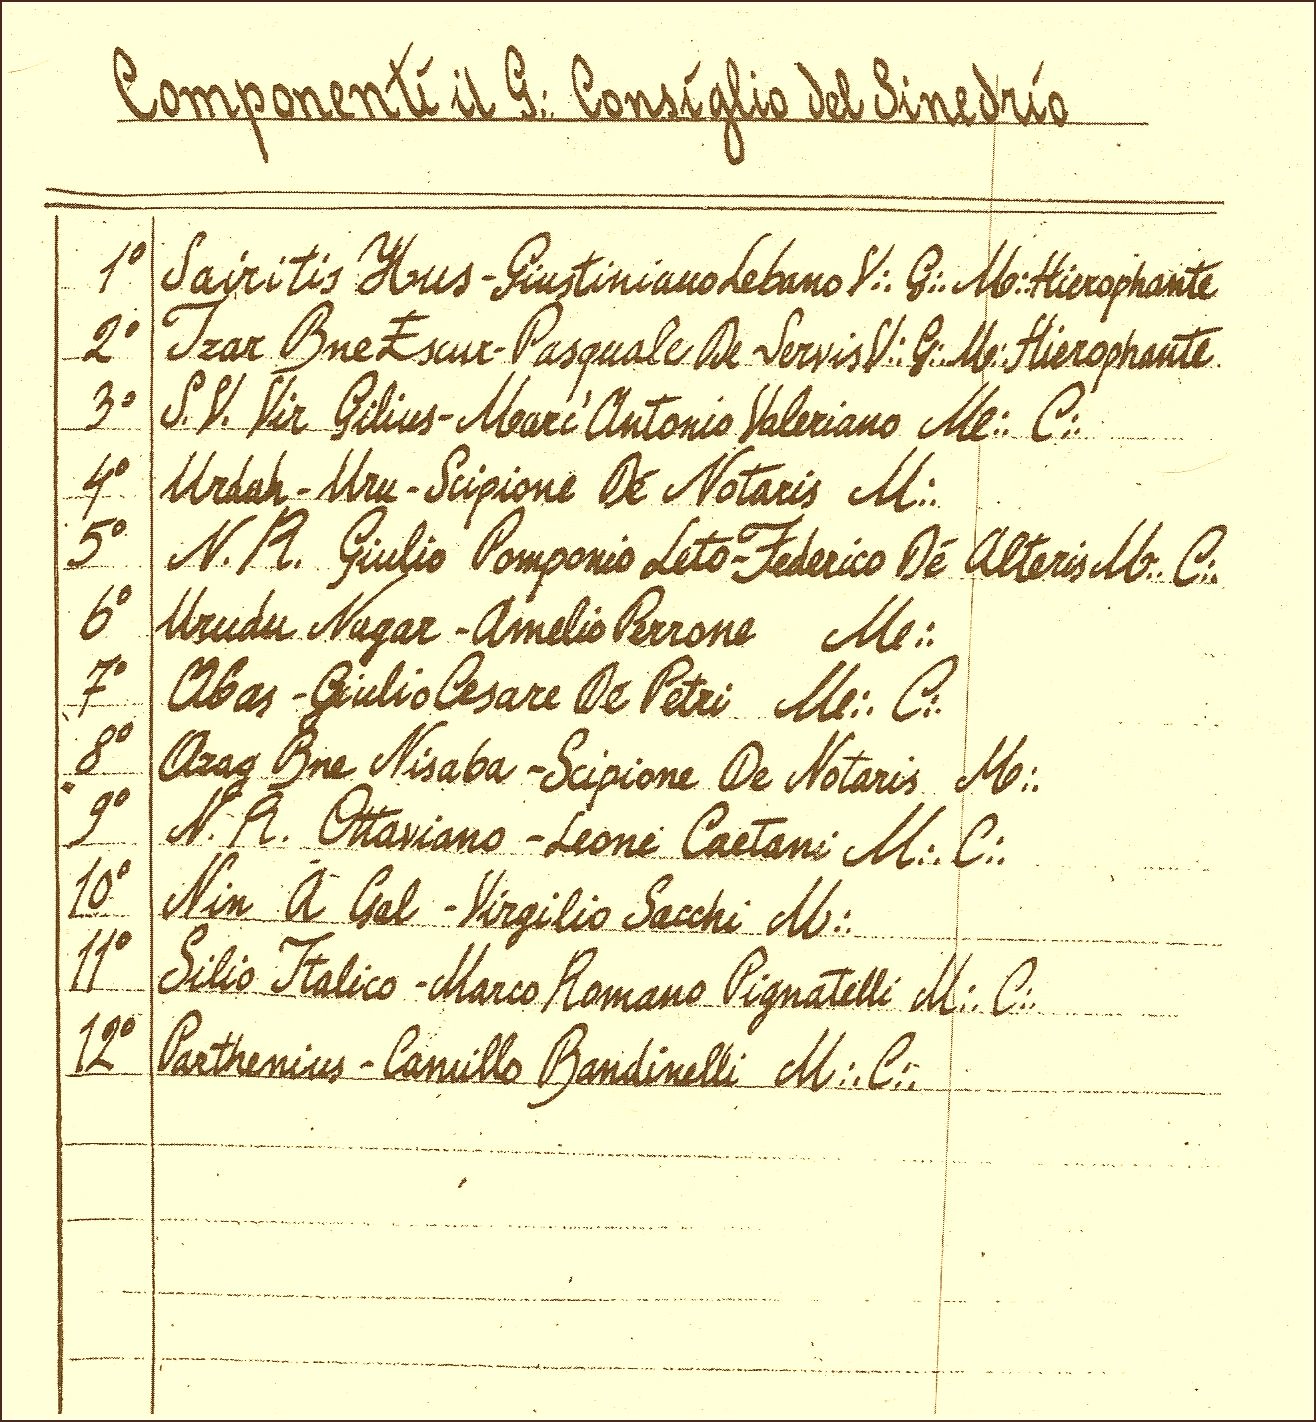 Componenti il G∴ Consiglio del Sinedrio
1° Sairitis Hus - Giustiniano Lebano V∴ G∴ M∴ Hierophante
2° Izar Bne Escur - Pasquale De Servis V∴ G∴ M∴ Hierophante
3° S. V. Vir Gilius - Marc'Antonio Valeriano M∴ C∴
4° Urdah - Uru - Scipione De Notaris M∴
5° N. R. Giulio Pomponio Leto - Federico De Alteris M∴ C∴
6° Urudu Nagar - Amelio Perrone M∴
7° Abas - Giulio Cesare De Petri M∴ C∴
8° Azag Bne Nisaba - Scipione De Notaris M∴
9° N. R. Ottaviano - Leone Caetani M∴ C∴
10° Nin A Gal - Virgilio Sacchi M∴
11° Silio Italico - Marco Romano Pignatelli M∴ C∴
12° Parthenius - Camillo Bandinelli M∴ C∴